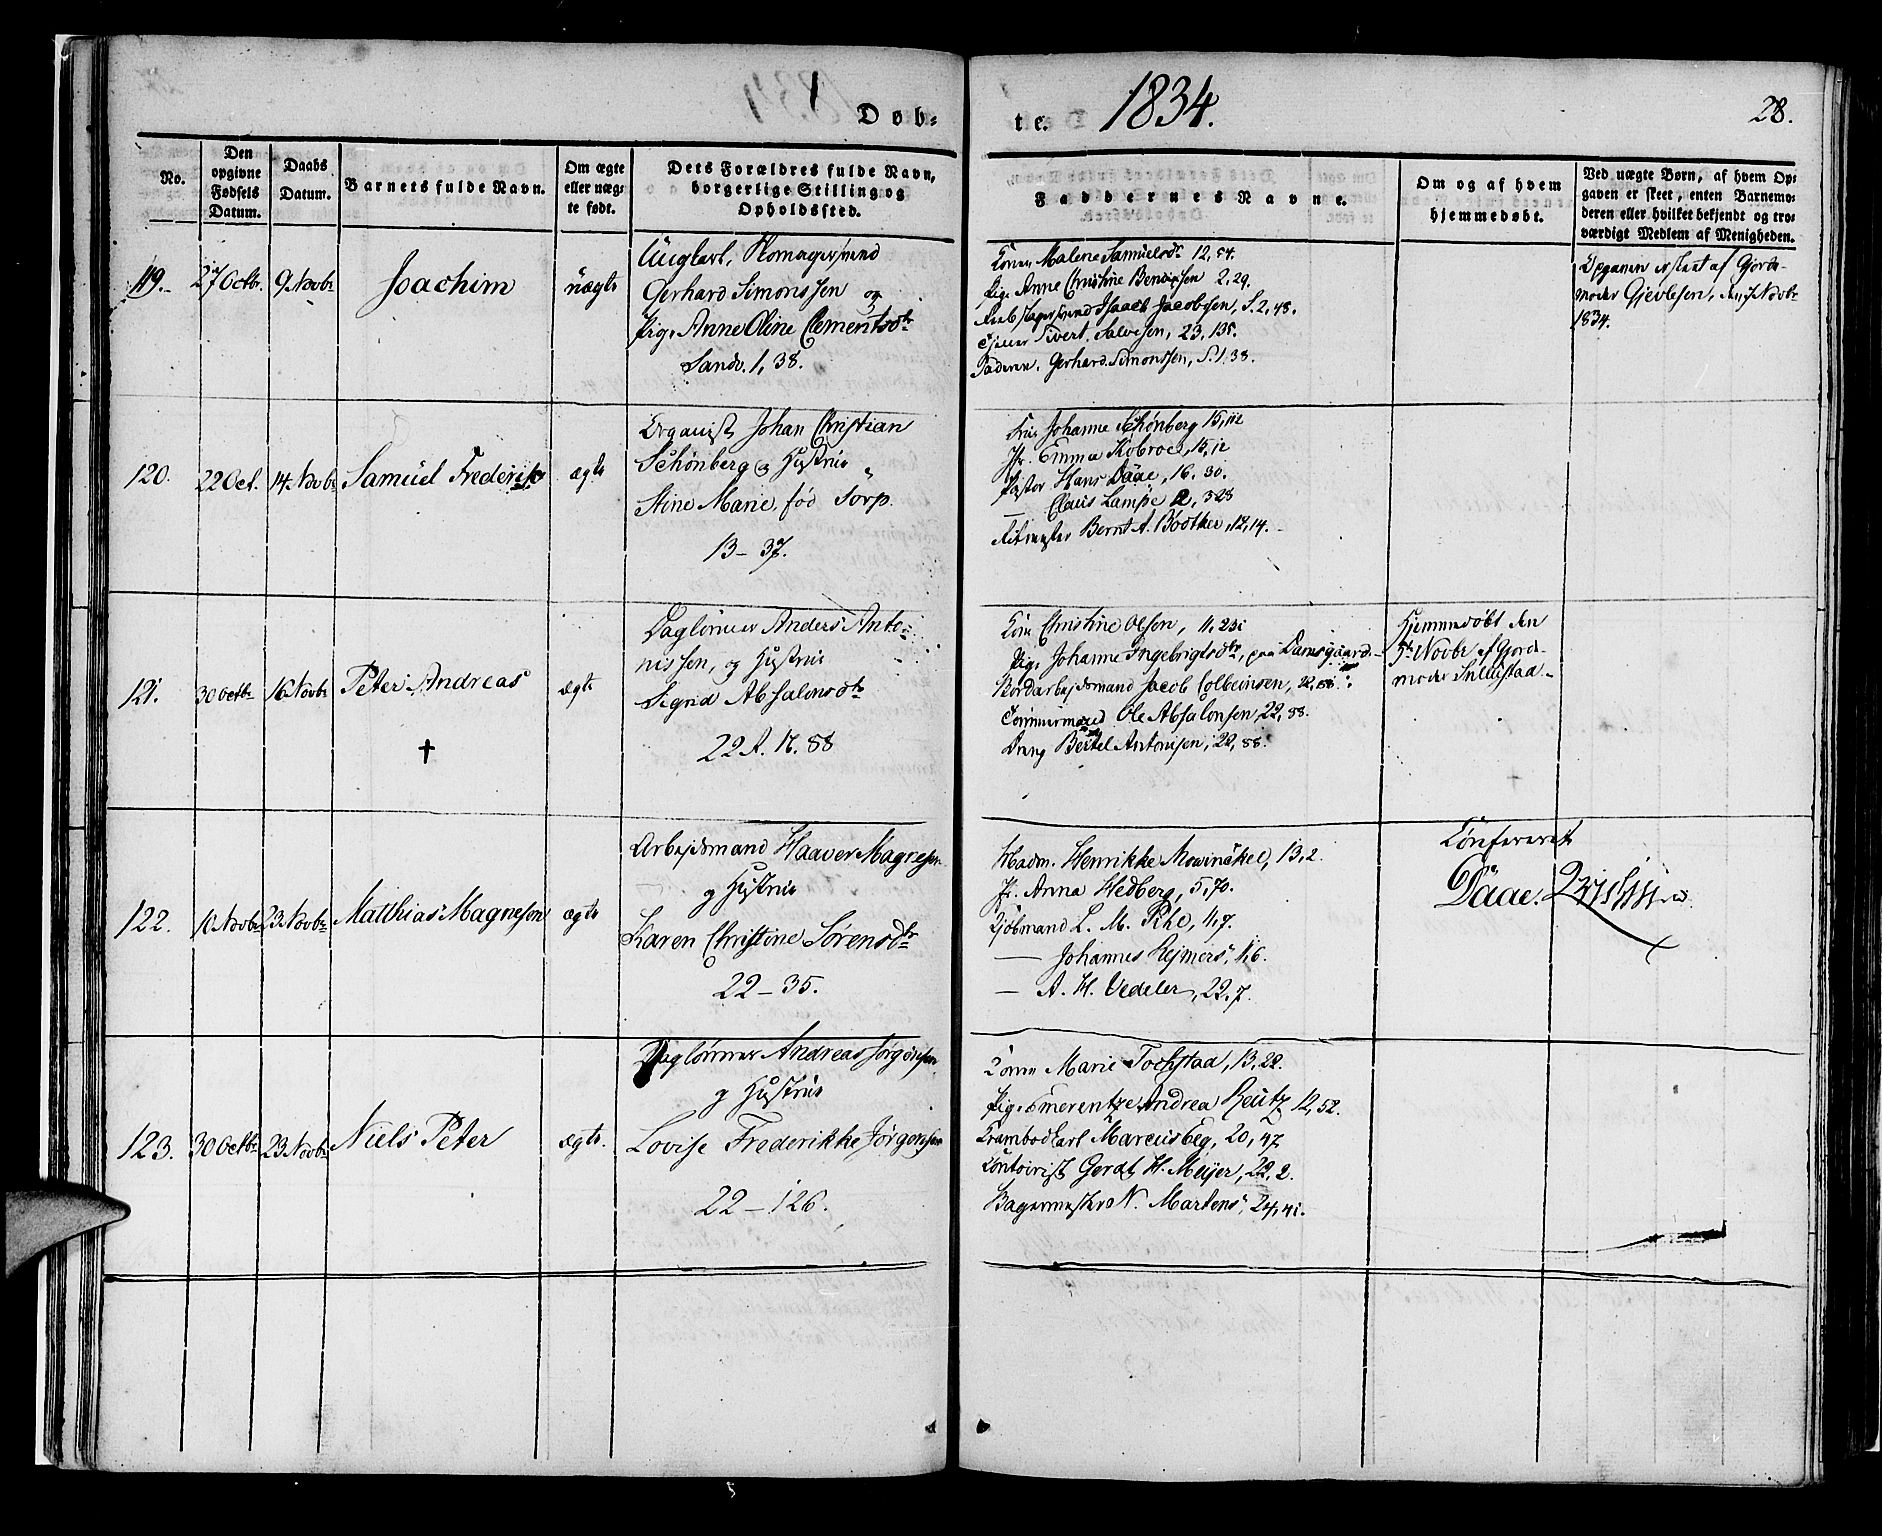 Døb-
te. 1834.
28.
No.
Den opgivne Fødsels Datum.
Daabs Datum.
Barnets fulde Navn.
Om ægte eller uæg-te født.
Dets Forældres fulde Navn, borgerlige Stilling og Opholdssted.
Faddernes Navne.
Om og af hvem hjemmedøbt.
Ved uægte Børn, af hvem Op-gaven er skeet, enten Barnemo-deren eller hvilket bekjendt og tro-værdigt Medlem af Menigheden.
119.
27 Octbr.
9 Novbr
Joachim
uægte
Ungkarl,
Gerhard Simonssen og
Pige Anne Oline Clementsdtr
Sandv. 1, 38.
Konen Malene Samuelsdtr 12, 54.
Pige Anne Christine Bendixsen 2, 29.
Isaach Jacobsen, S. 2, 48.
Sivert Salvesen, 23, 135.
Faderen, Gerhard Simonssen, S. 1, 38.
Opgaven er skeet af Gjorde-
moder Gjevlesen, den 7 Novbr
1834.
120.
22 Oct.
14 Novbr
Samuel Frederik
ægte
Organist Johan Christian
Schönberg og Hustrue
Stine Marie, fød Torp.
13 – 37.
Johanne Schönberg 15, 112
Jfr. Emma Kobroe, 15, 12
Pastor Hans Dääe, 16. 30.
— Claus Lampe 2, 328
Ritmester Bernt A. Böather, 12, 14.
121.
30 Octbr
16 Novbr
Peter Andreas
†
ægte
Daglönner Anders Anto-
nissen, og Hustrue
Sigrid Absalonsdtr
22 A. N. 88
Kone Christine Olsen, 11, 231
Pige Johanne Ingebrigtsdtr, paa Damsgaard
Jacob Colbeinsen, 22, 88.
Tömmermand Ole Absalonsen, 22, 88.
Dreng Bertel Antonisen, 22, 88.
Hjemmedöbt den
5te Novbr af Gjord-
moder
122.
10 Novbr
23 Novbr
Matthias Magneson
ægte
Arbejdsmand Haaver Magneson
og Hustrue
Karen Christine Sörensdtr
22 – 35.
Madm. Henrikke Mowinckel, 13, 2.
Jfr. Anna Hedberg, 5, 70.
Kjöbmand L. M. Pihe, 4, 7.
— Johannes Rejmers, 1, 6.
— A. H. Vedeler, 22, 7.
Confereret
Dääe.
123.
30 Octbr
23 Novbr
Niels Peter
ægte.
Daglönner Andreas Jörgensen
og Hustrue
Lovise Frederikke Jörgensen
22 – 126.
Konen Marie Tochstad, 13, 22.
Pige Emerentze Andrea Reutz 12, 52.
Krambodkarl Marcus Eeg, 20, 47
Contoirist Gerdt H. Meijer, 22, 2.
Bagermester N. Martens, 24, 41.